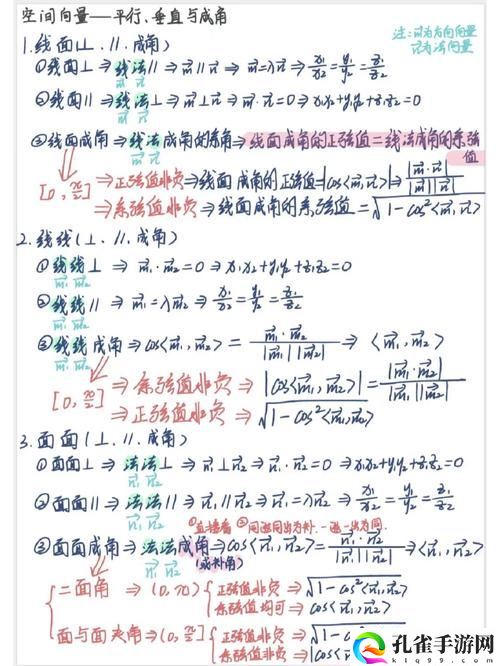 空间向量——平行、垂直与成角
注:m⃗为方向向量
n⃗为法向量
1.线面(⊥、∥、成角)
①线面⊥⇒线法∥⇒m⃗∥n⃗⇒m⃗=λn⃗⇒x₁/x₂=y₁/y₂=z₁/z₂
m⃗ n⃗
②线面∥⇒线法⊥⇒m⃗⊥n⃗⇒m⃗·n⃗=0⇒x₁x₂+y₁y₂+z₁z₂=0
m⃗ n⃗
③线面成角⇒线法成角的余角⇒线面成角的正弦值=线法成角的余弦值
m⃗ n⃗
[0,π/2]⇒正弦值非负⇒线面成角的正弦值=|cos<m⃗,n⃗>|⇒|m⃗·n⃗|/|m⃗||n⃗|
⇒余弦值非负⇒线面成角的余弦值=√1-cos²<m⃗,n⃗>
2.线线(⊥、∥、成角)
①线线⊥⇒m⃗₁·m⃗₂=0⇒x₁x₂+y₁y₂+z₁z₂=0
m⃗₁ m⃗₂
②线线∥⇒m⃗₁=λm⃗₂⇒x₁/x₂=y₁/y₂=z₁/z₂
m⃗₁ m⃗₂
③线线成角⇒cos<m⃗₁,m⃗₂>=m⃗₁·m⃗₂/|m⃗₁||m⃗₂|⇒<m⃗₁,m⃗₂>
m⃗₁ m⃗₂
[0,π/2]⇒余弦值非负⇒|cos<m⃗₁,m⃗₂>|=|m⃗₁·m⃗₂|/|m⃗₁||m⃗₂|
⇒正弦值非负⇒√1-cos²<m⃗₁,m⃗₂>
3.面面(⊥、∥、成角)
①面面⊥⇒法法⊥⇒n⃗₁⊥n⃗₂⇒n⃗₁·n⃗₂=0⇒x₁x₂+y₁y₂+z₁z₂=0
n⃗₁ n⃗₂
②面面∥⇒法法∥⇒n⃗₁∥n⃗₂⇒n⃗₁=λn⃗₂⇒x₁/x₂=y₁/y₂=z₁/z₂
n⃗₁ n⃗₂
①直接看 ②同进同出为补.一进一出为同.
③面面成角⇒法法成角⇒cos<n⃗₁,n⃗₂>=n⃗₁·n⃗₂/|n⃗₁||n⃗₂|⇒<n⃗₁,n⃗₂>
n⃗₁ n⃗₂ (或补角)
二面角⇒(0,π){正弦值非负⇒√1-cos²<n⃗₁,n⃗₂>
余弦值均可⇒cos<n⃗₁,n⃗₂>
面与面夹角⇒(0,π/2]{正弦值非负⇒√1-cos²
余弦值非负⇒|cos
孔雀手游网
k1q99.com